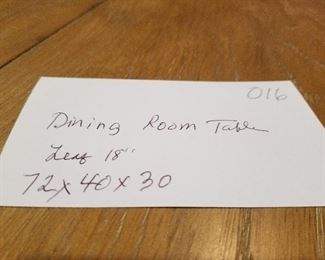 016
Dining Room Table
Leaf 18"
72x40x30